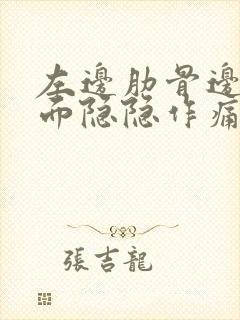 左邊肋骨邊
而隐隐作痛
張吉龍